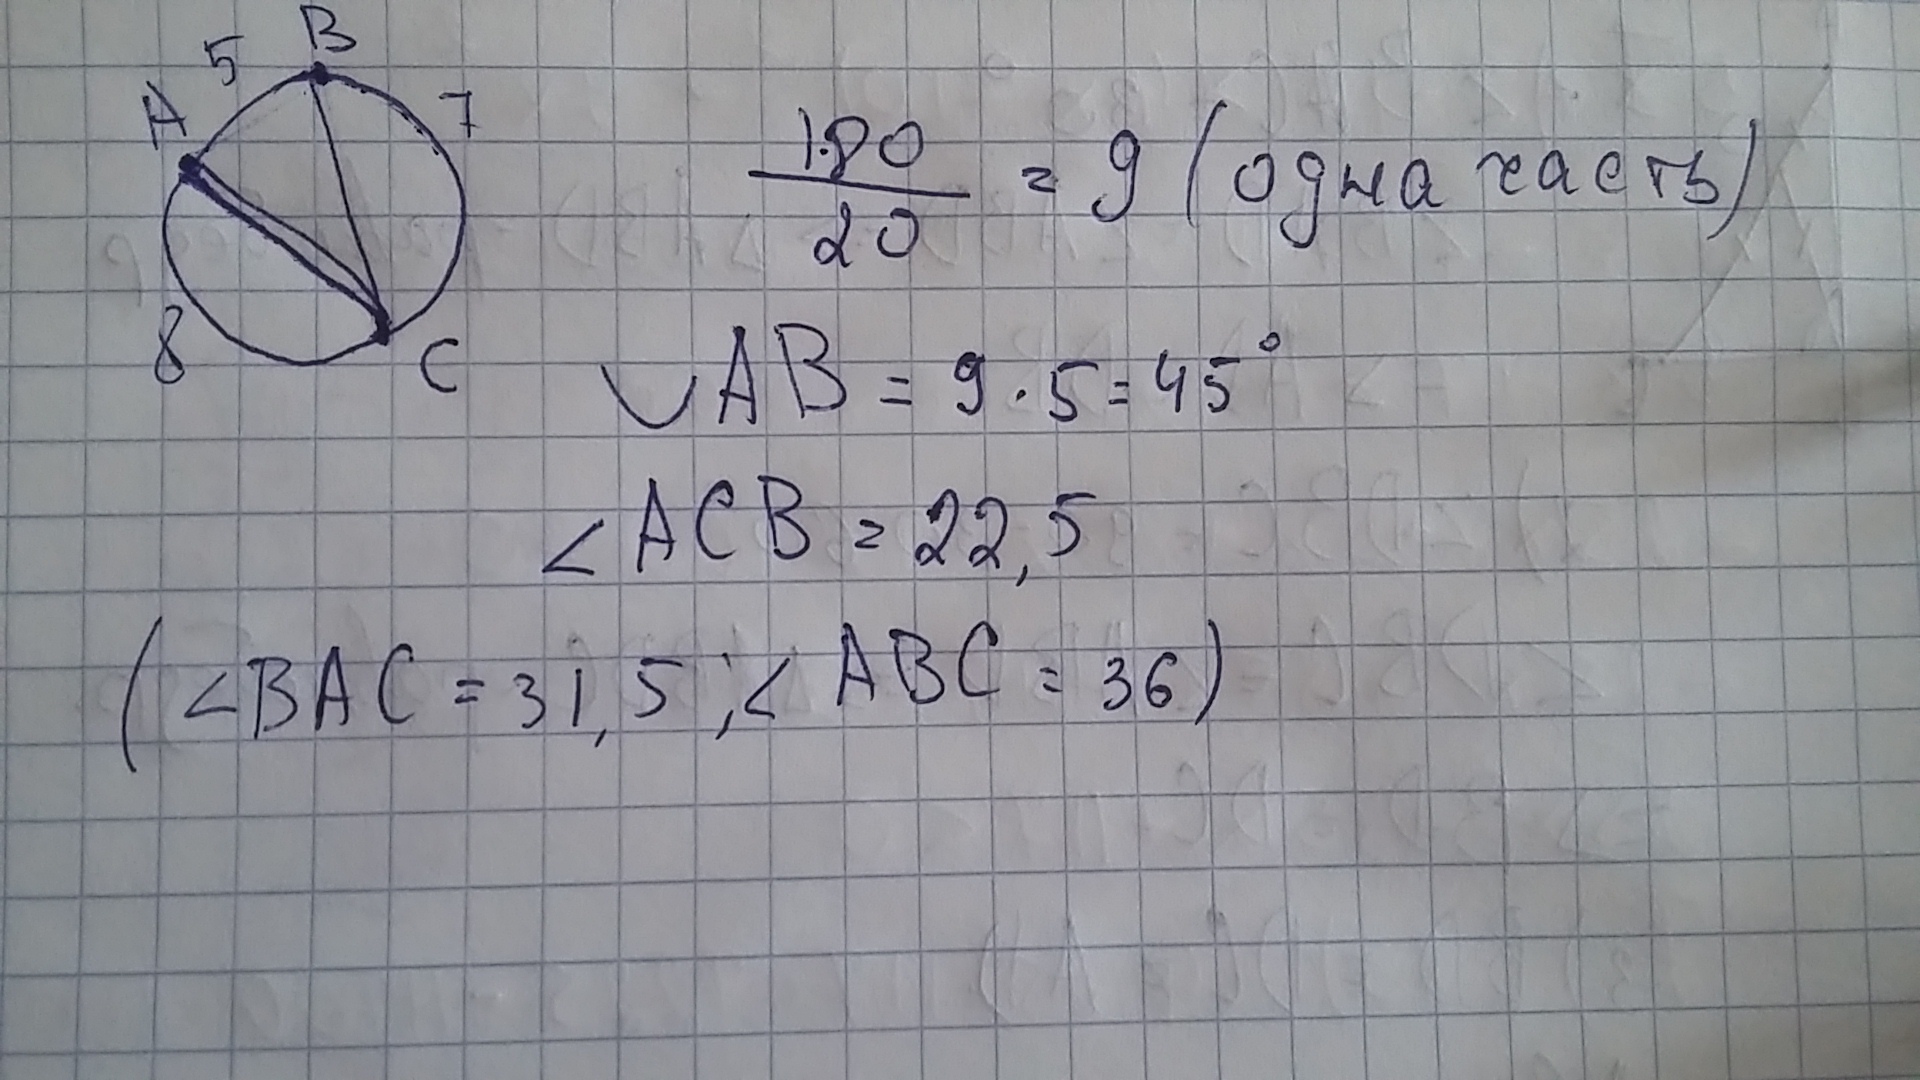 B
5
A
7
8
C
180/20 = 9 (одна часть)
◡AB = 9·5=45°
∠ACB = 22,5
(∠BAC = 31,5; ∠ABC = 36)